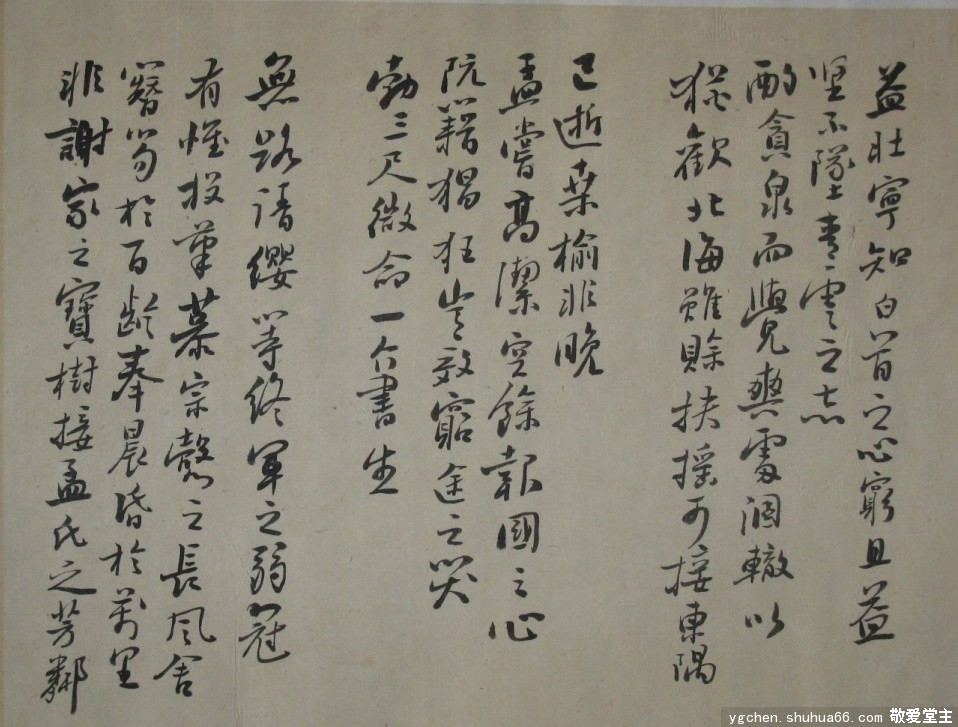 益壯寧知白首之心窮且益
坚不墜青雲之志
酌貪泉而覺爽處涸轍以
猶歡北海雖賒扶搖可接東隅
已逝桑榆非晚
孟嘗高潔空餘報國之心
阮籍猖狂豈效窮途之哭
勃三尺微命一介書生
無路請纓等終軍之弱冠
有懷投筆慕宗愨之長風舍
簪笏於百齡奉晨昏於萬里
非謝家之寶樹接孟氏之芳鄰
ygchen.shuhua66.com 敬爱堂主